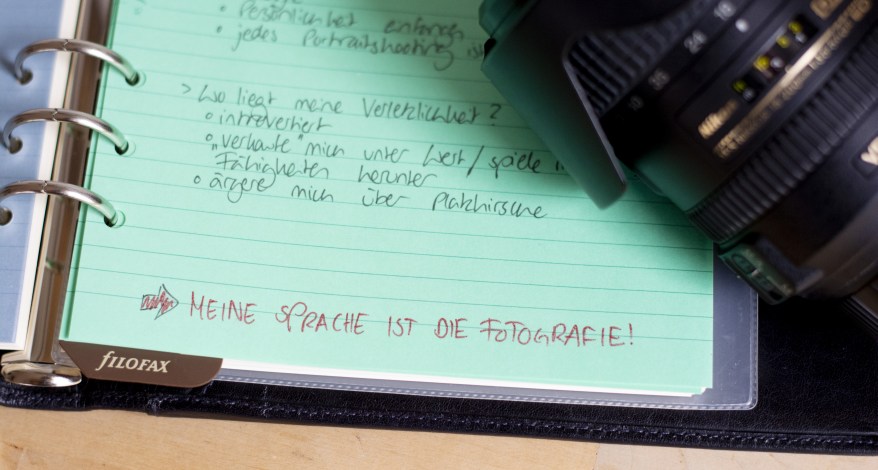 • Persönlichkeit einfangen
• jedes Portraitshooting is
> Wo liegt meine Verletzlichkeit?
o introvertiert
o „verkaufe" mich unter Wert / spiele
Fähigkeiten herunter
o ärgere mich über Platzhirsche
MEINE SPRACHE IST DIE FOTOGRAFIE!
fILOFAX
24
18
35
Nikon